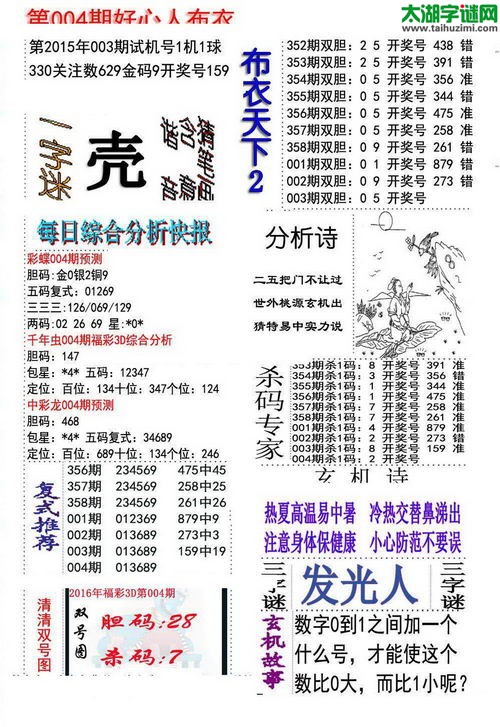 第004期好心人布衣
太湖字谜网
www.taihuzimi.com
第2015年003期试机号1机1球
330关注数629金码9开奖号159
一字迷
壳
布衣天下2
352期双胆: 2 5 开奖号 438 错
353期双胆: 2 5 开奖号 391 错
354期双胆: 0 5 开奖号 356 准
355期双胆: 0 5 开奖号 344 错
356期双胆: 0 5 开奖号 475 准
357期双胆: 0 5 开奖号 258 准
358期双胆: 0 9 开奖号 261 错
001期双胆: 0 1 开奖号 879 错
002期双胆: 0 9 开奖号 273 错
003期双胆: 0 5 开奖号
每日综合分析快报
彩蝶004期预测
胆码: 金0银2铜9
五码复式: 01269
三三三: 126/069/129
两码: 02 26 69 星: *0*
千年虫004期福彩3D综合分析
胆码: 147
包星: *4* 五码: 12347
定位: 百位: 134十位: 347个位: 124
中彩龙004期预测
胆码: 468
包星: *4* 五码复式: 34689
定位: 百位: 689十位: 134个位: 246
分析诗
二五把门不让过
世外桃源玄机出
猜特易中实力说
杀码专家
353期杀1码: 8 开奖号 391 准
354期杀1码: 3 开奖号 356 错
355期杀1码: 1 开奖号 344 准
356期杀1码: 1 开奖号 475 准
357期杀1码: 7 开奖号 258 准
358期杀1码: 7 开奖号 261 准
001期杀1码: 4 开奖号 879 准
002期杀1码: 3 开奖号 273 错
003期杀1码: 8 开奖号 159 准
004期杀1码: 2 开奖号
复式推荐
356期 234569 475中45
357期 234569 258中25
358期 234569 261中26
001期 012369 879中9
002期 013689 273中3
003期 013689 159中19
004期 013689
玄机诗
热夏高温易中暑 冷热交替鼻涕出
注意身体保健康 小心防范不要误
清清双号图
2016年福彩3D第004期
双号图
胆码:28
杀码:7
三字谜
发光人
三字谜
玄机故事
数字0到1之间加一个
什么号，才能使这个
数比0大，而比1小呢？